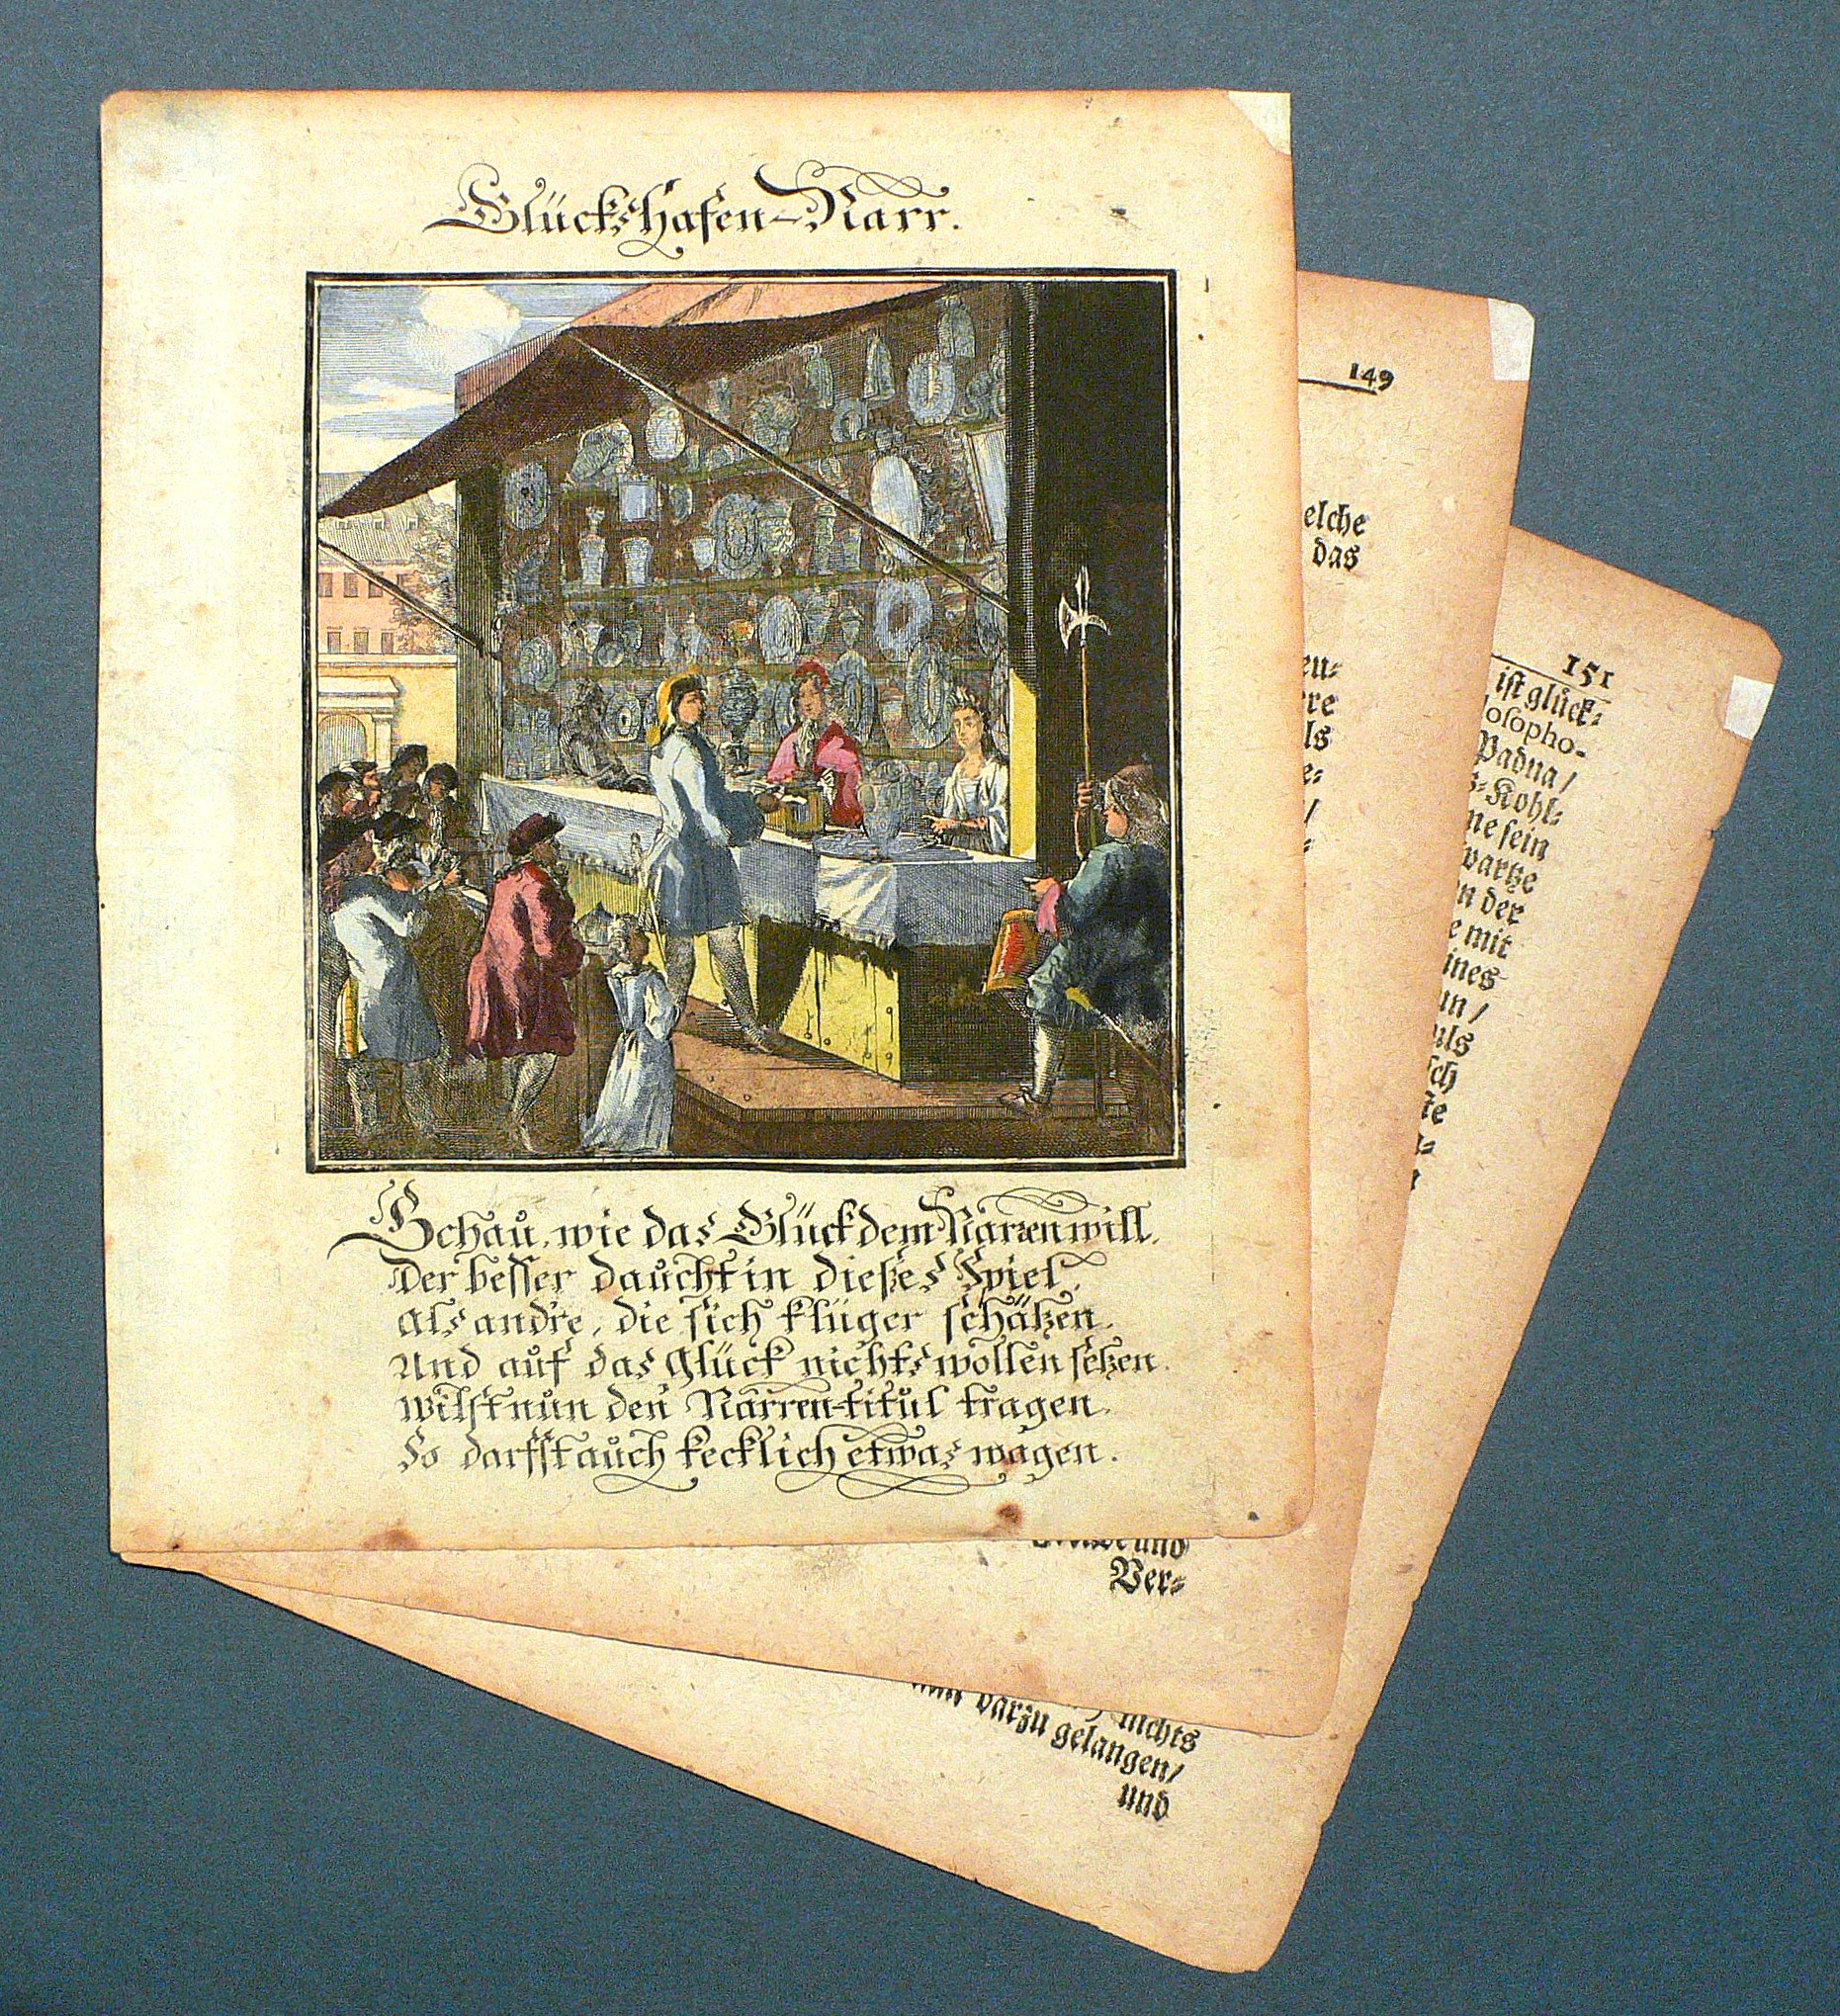 Glückshafen-Narr.
Schaů, wie das Glück dem Narren will.
Der besser daůcht in dießes Spiel,
Als andre, die sich klüger schätzen.
Und aůf das Glück nichts wollen setzen.
Wilst nůn den Narren-titůl tragen.
So darfst aůch kecklich etwas wagen.
149
elche
das
en⸗
re
ls
e⸗
/
und
Ver⸗
151
ist glück⸗
osopho-
Padua /
⸗Kohl⸗
ne sein
wartze
n der
e mit
ines
un /
als
sch
te
nichts
darzu gelangen/
und